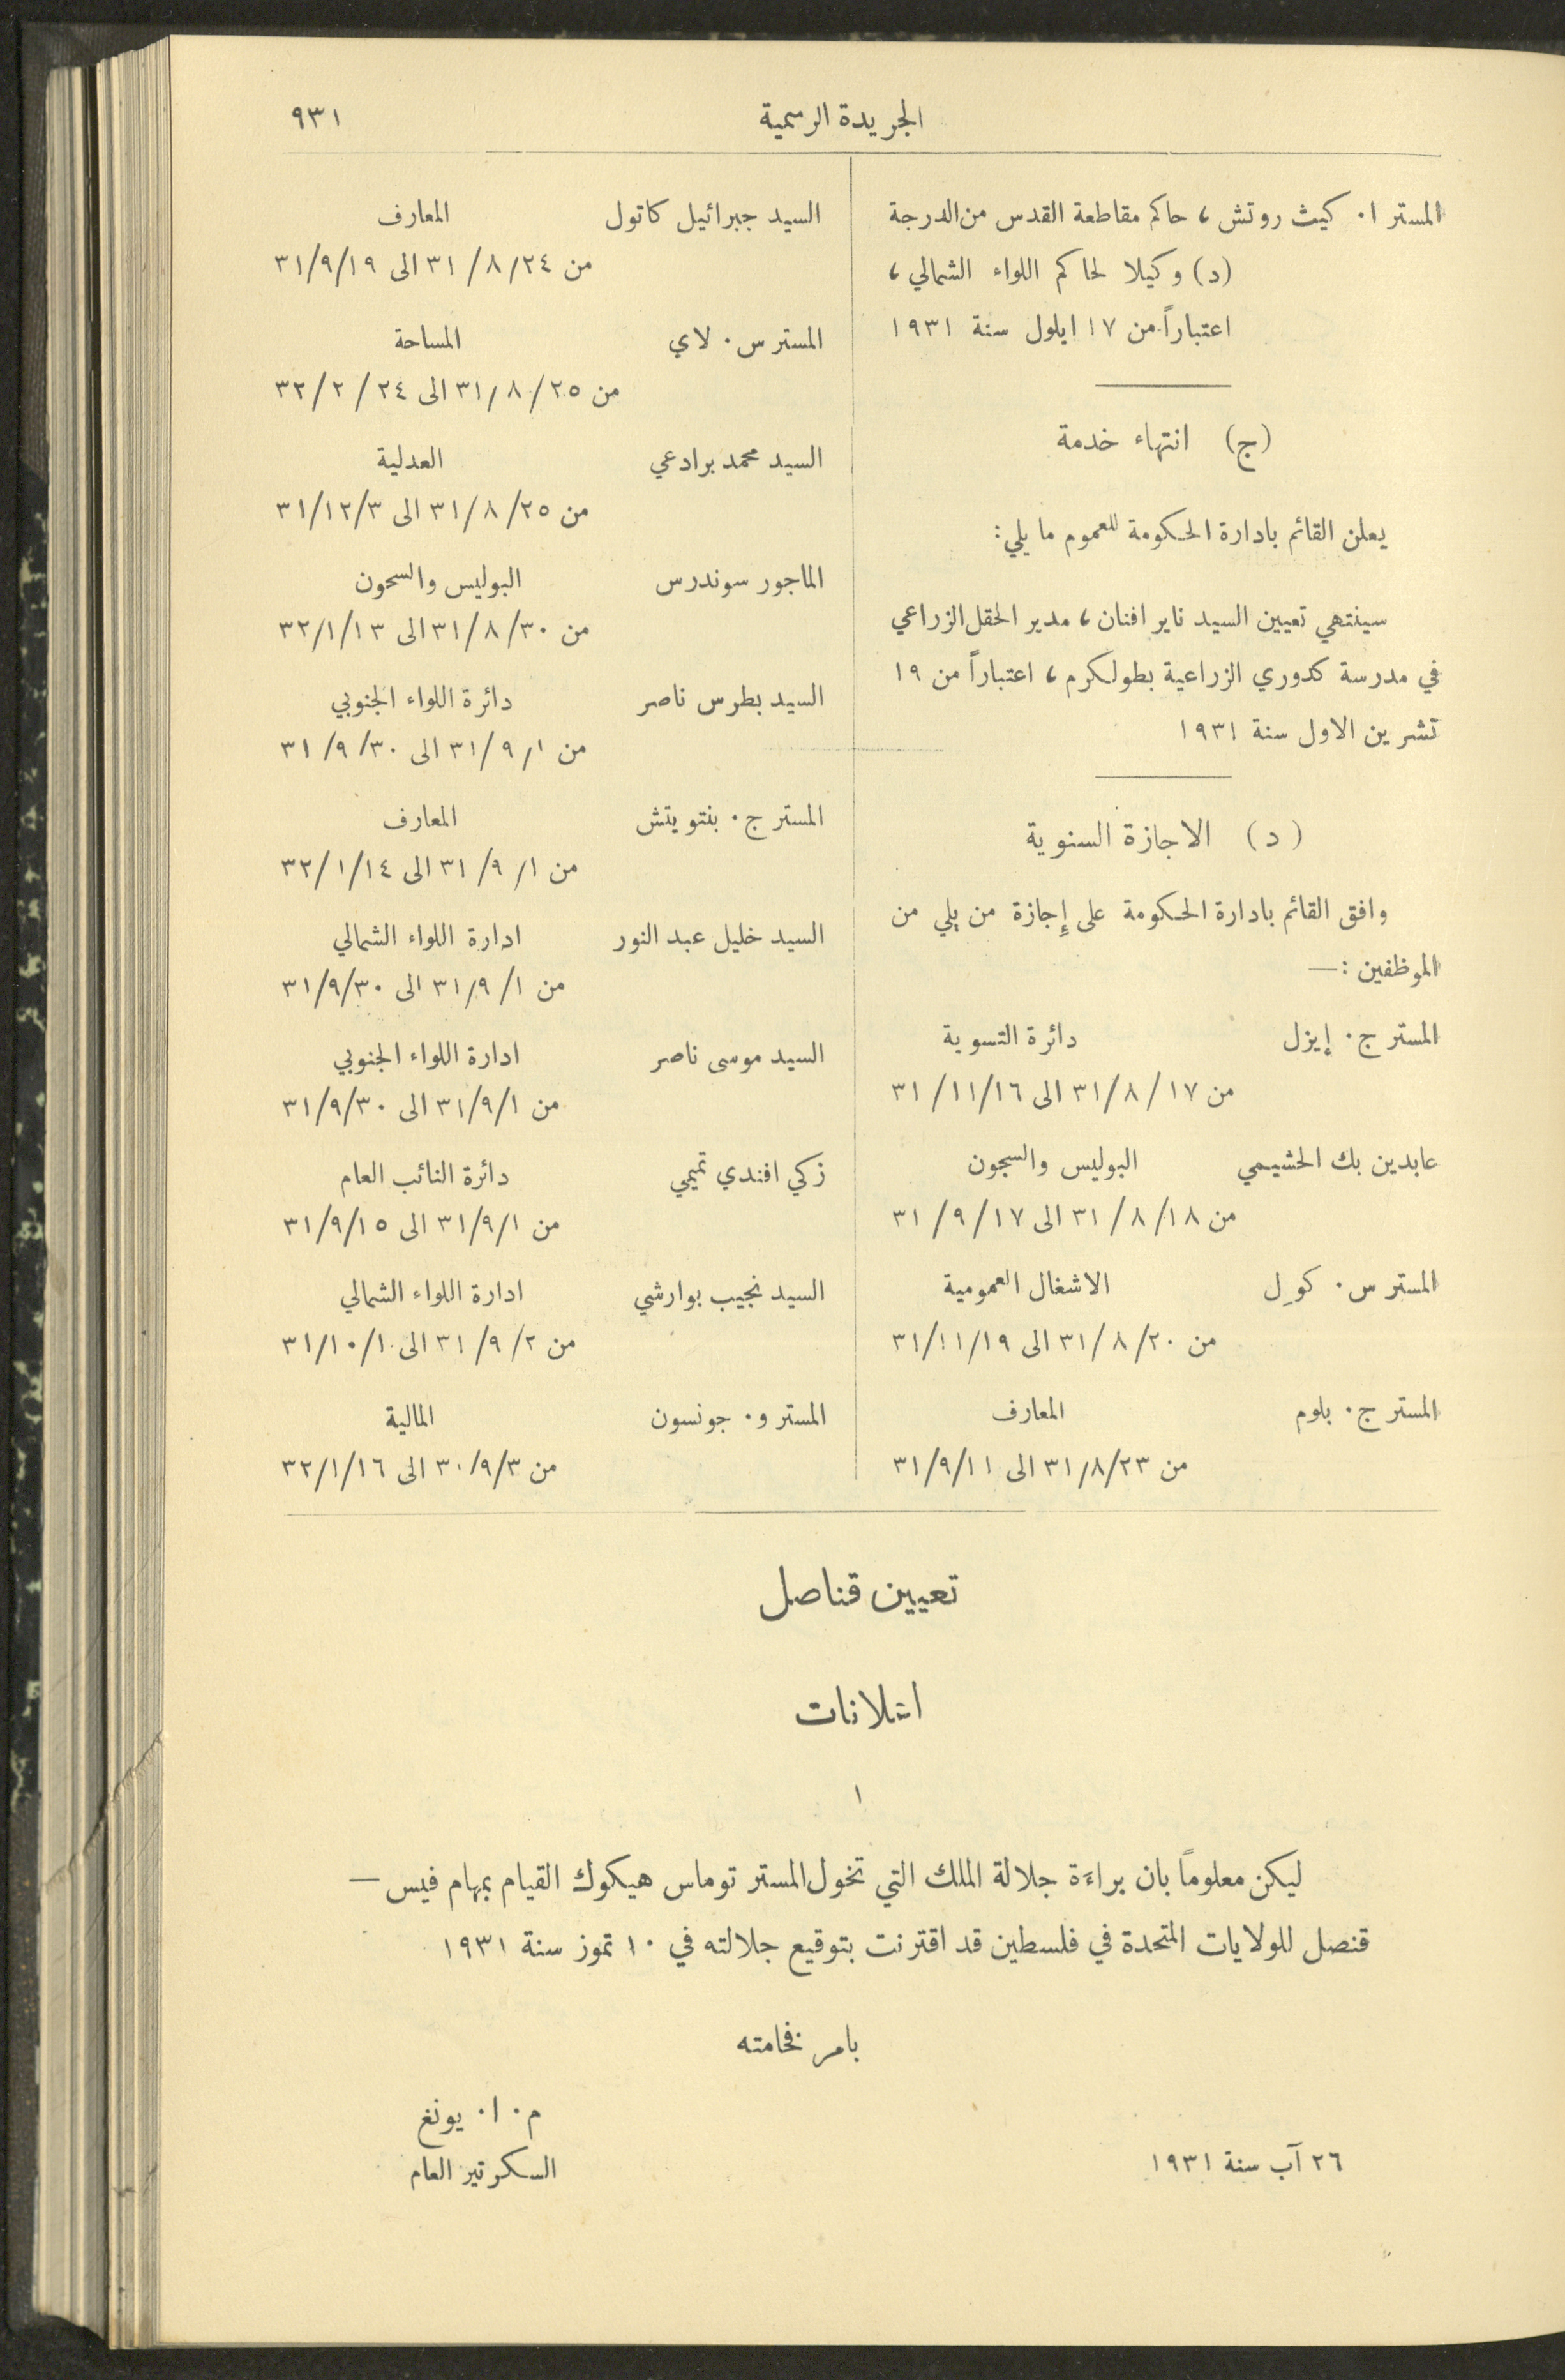 الجريدة الرسمية
٩٣١
المستر ا. كيث روتش، حاكم مقاطعة القدس من الدرجة
(د) وكيلا لحاكم اللواء الشمالي،
اعتباراً من ١٧ ايلول سنة ١٩٣١
(ج) انتهاء خدمة
يعلن القائم بادارة الحكومة للعموم ما يلي:
سينتهي تعيين السيد ناير افنان، مدير الحقل الزراعي
في مدرسة كدوري الزراعية بطولكرم، اعتباراً من ١٩
تشرين الاول سنة ١٩٣١
(د) الاجازة السنوية
وافق القائم بادارة الحكومة على إِجازة من يلي من
الموظفين :—
المستر ج. إيزل دائرة التسوية
من ١٧/٨/٣١ الى ١٦/١١/٣١
عابدين بك الحشيمي البوليس والسجون
من ١٨/٨/٣١ الى ١٧/٩/٣١
المستر س. كوِل الاشغال العمومية
من ٢٠/٨/٣١ الى ١٩/١١/٣١
المستر ج. بلوم المعارف
من ٢٣/٨/٣١ الى ١١/٩/٣١
السيد جبرائيل كاتول المعارف
من ٢٤/٨/٣١ الى ١٩/٩/٣١
المستر س. لاي المساحة
من ٢٥/٨/٣١ الى ٢٤/٢/٣٢
السيد محمد برادعي العدلية
من ٢٥/٨/٣١ الى ٣/١٢/٣١
الماجور سوندرس البوليس والسحون
من ٣٠/٨/٣١ الى ١٣/١/٣٢
السيد بطرس ناصر دائرة اللواء الجنوبي
من ١/٩/٣١ الى ٣٠/٩/٣١
المستر ج. بنتويتش المعارف
من ١/٩/٣١ الى ١٤/١/٣٢
السيد خليل عبد النور ادارة اللواء الشمالي
من ١/٩/٣١ الى ٣٠/٩/٣١
السيد موسى ناصر ادارة اللواء الجنوبي
من ١/٩/٣١ الى ٣٠/٩/٣١
زكي افندي تميمي دائرة النائب العام
من ١/٩/٣١ الى ١٥/٩/٣١
السيد نجيب بوارشي ادارة اللواء الشمالي
من ٢/٩/٣١ الى ١/١٠/٣١
المستر و. جونسون المالية
من ٣/٩/٣٠ الى ١٦/١/٣٢
تعيين قناصل
اعلانات
١
ليكن معلوماً بان براءة جلالة الملك التي تخول المستر توماس هيكوك القيام بمهام فيس —
قنصل للولايات المتحدة في فلسطين قد اقترنت بتوقيع جلالته في ١٠ تموز سنة ١٩٣١
بامر فخامته
م. ا. يونغ
السكرتير العام
٢٦ آب سنة ١٩٣١